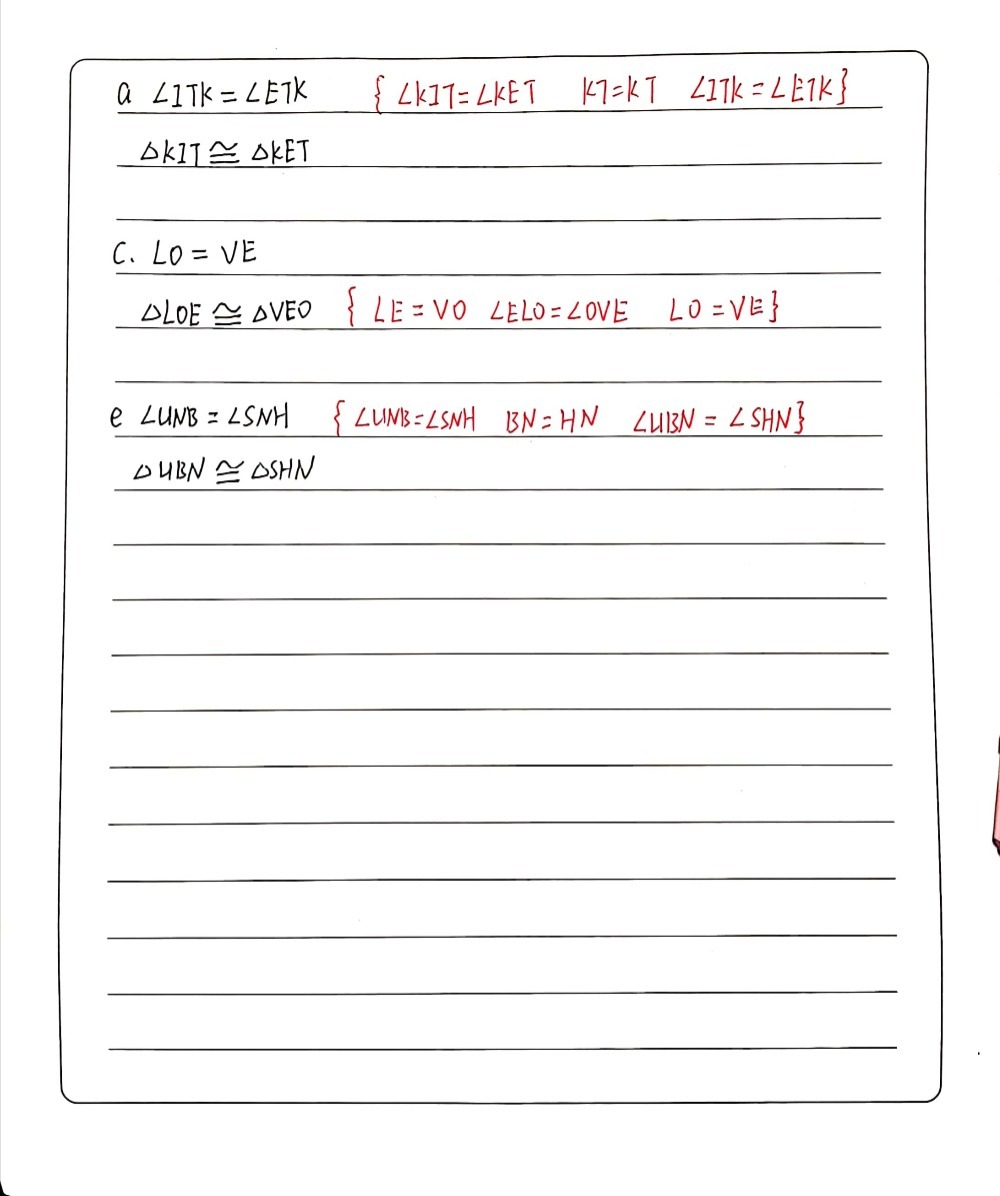 a ∠ITK = ∠ETK { ∠KIT = ∠KET KT = KT ∠ITK = ∠ETK }
△KIT ≅ △KET
C. LO = VE
△LOE ≅ △VEO { LE = VO ∠ELO = ∠OVE LO = VE }
e ∠UNB = ∠SNH { ∠UNB = ∠SNH BN = HN ∠UBN = ∠SHN }
△UBN ≅ △SHN